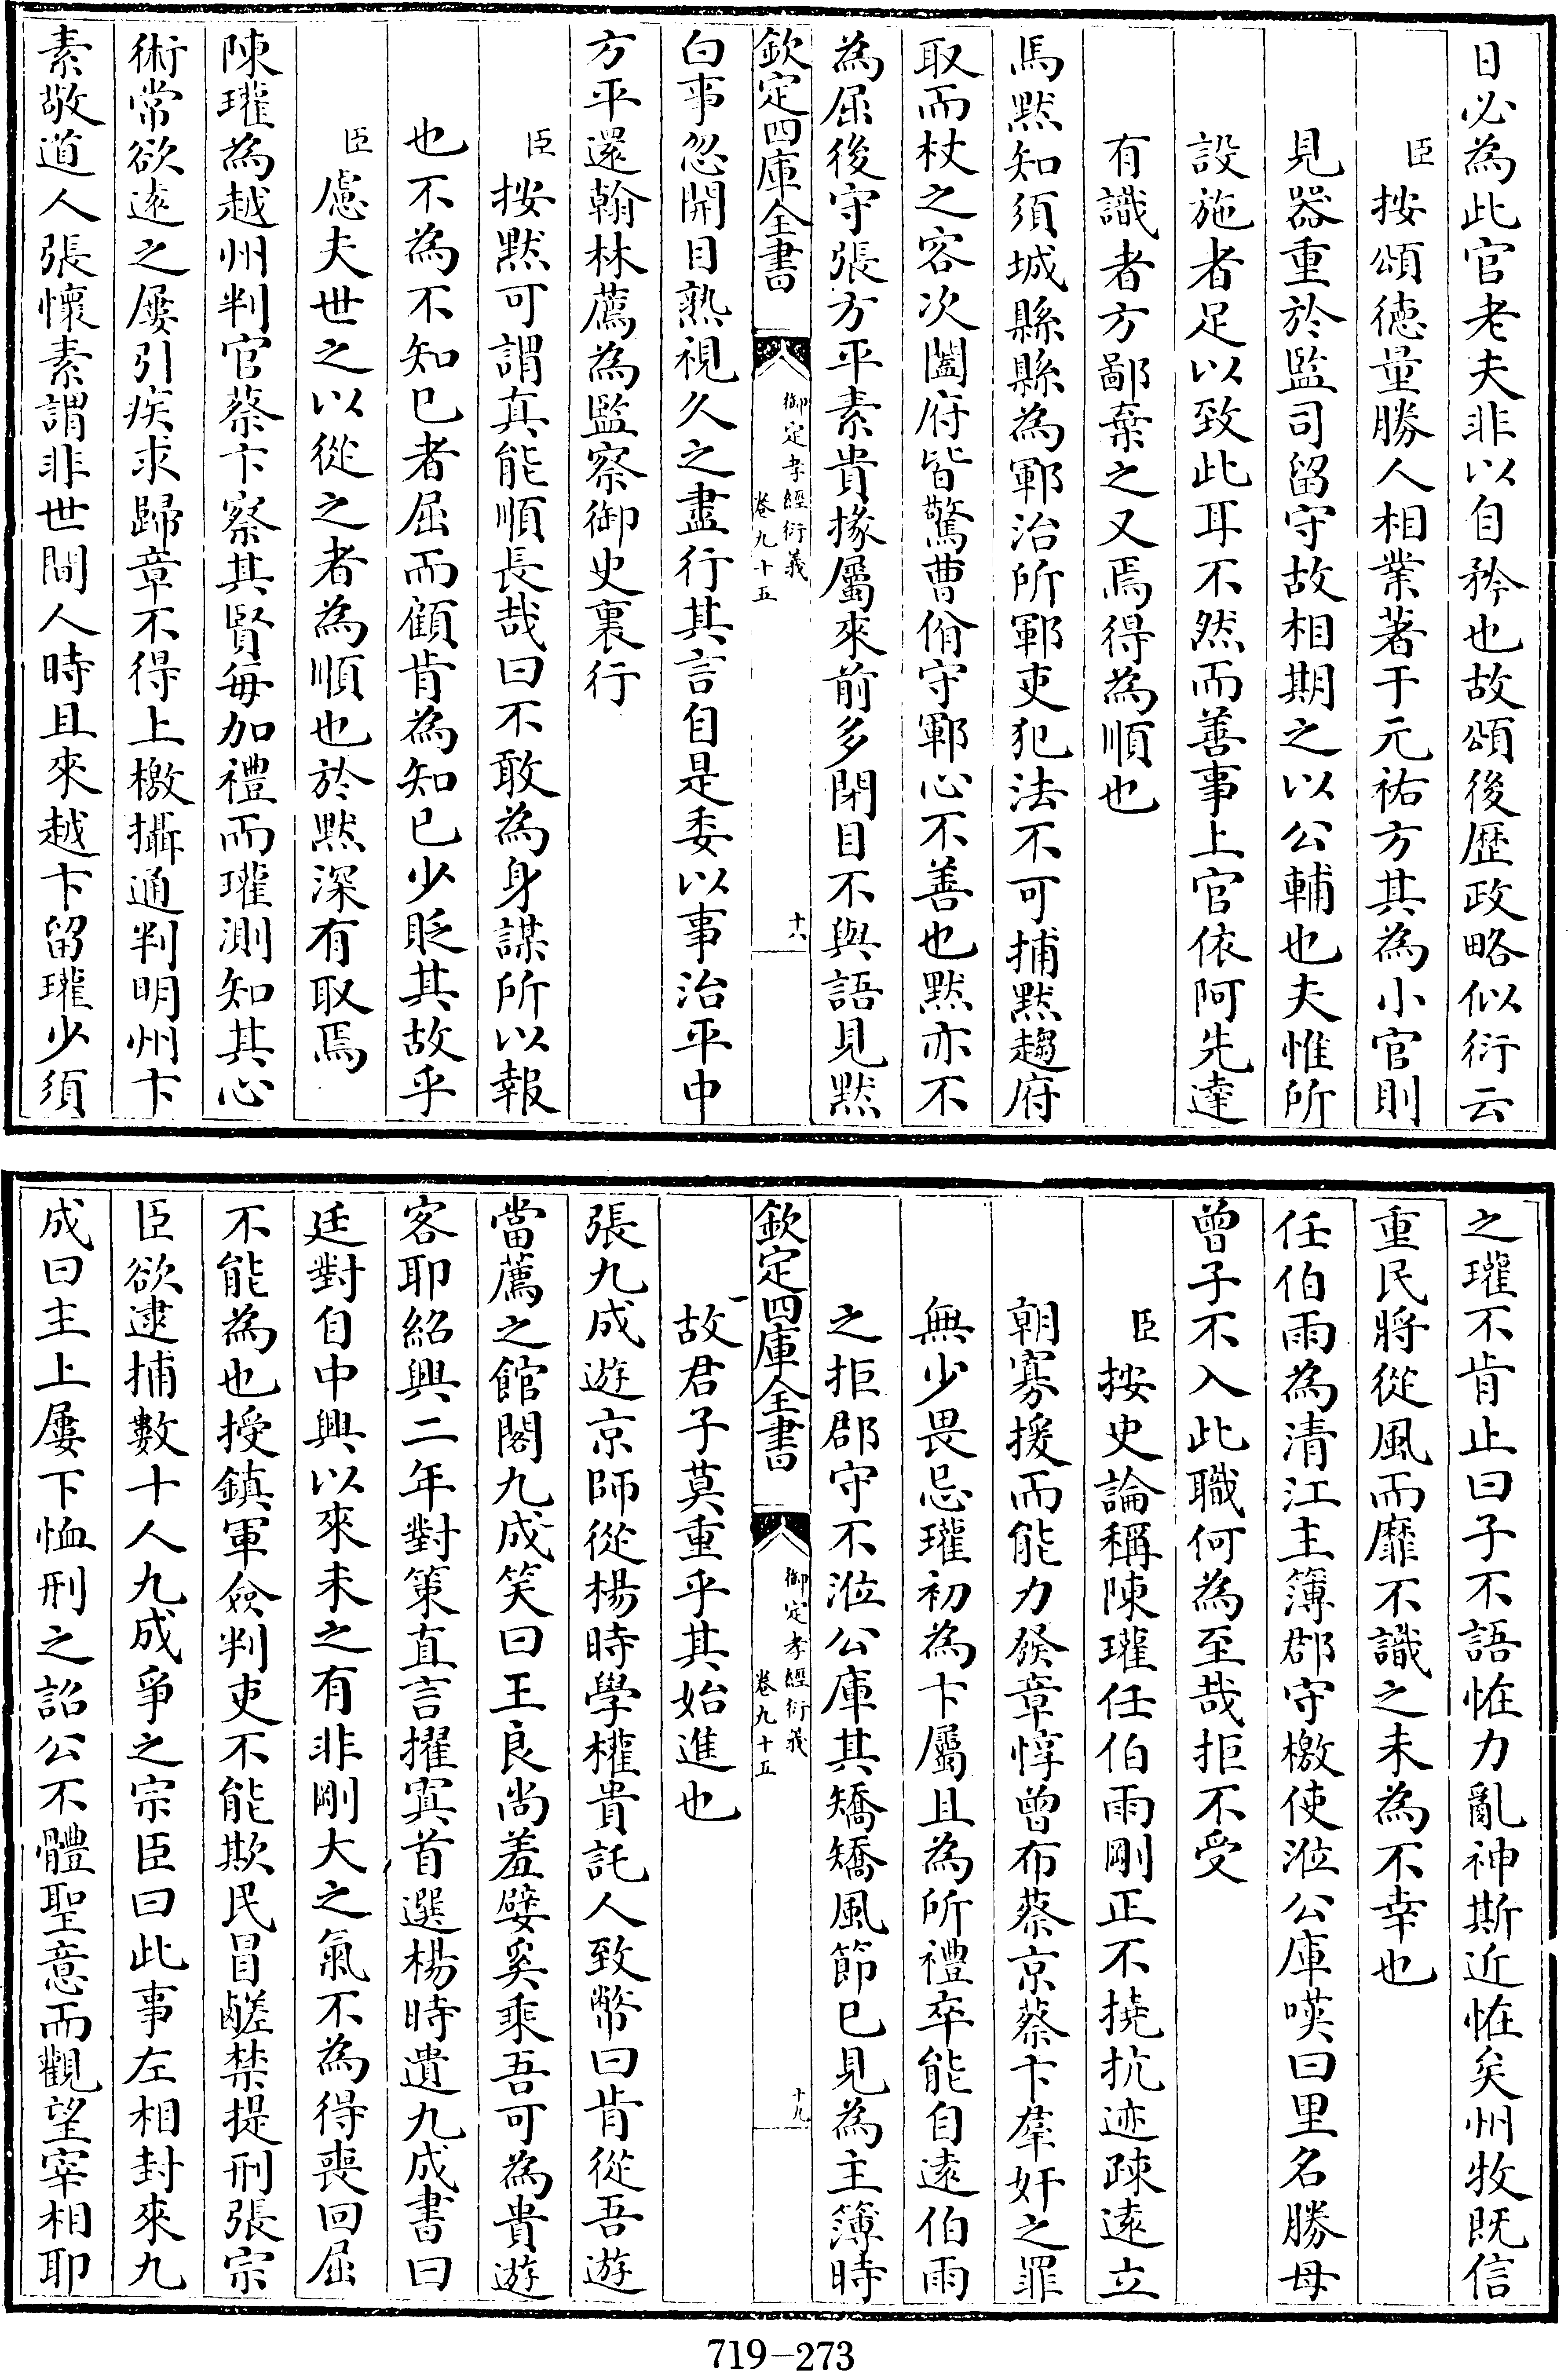 日必為此官老夫非以自矜也故頌後歴政略似衍云
臣按頌德量勝人相業著于元祐方其為小官則
見器重於監司留守故相期之以公輔也夫惟所
設施者足以致此耳不然而善事上官依阿先達
有識者方鄙棄之又焉得為順也
馬黙知須城縣縣為鄆治所鄆吏犯法不可捕黙趨府
取而杖之客次闔府皆驚曹佾守鄆心不善也黙亦不
為屈後守張方平素貴掾屬來前多閉目不與語見黙
欽定四庫全書
御定孝經衍義
卷九十五
十八
白事忽開目熟視久之盡行其言自是委以事治平中
方平還翰林薦為監察御史裏行
臣按黙可謂真能順長哉曰不敢為身謀所以報
也不為不知已者屈而顧肯為知已少貶其故乎
臣慮夫世之以從之者為順也於黙深有取焉
陳瓘為越州判官蔡卞察其賢每加禮而瓘測知其心
術常欲逺之屢引疾求歸章不得上檄攝通判明州卞
素敬道人張懷素謂非世間人時且來越卞留瓘少須
之瓘不肯止曰子不語怪力亂神斯近怪矣州牧既信
重民將從風而靡不識之未為不幸也
任伯雨為清江主簿郡守檄使涖公庫嘆曰里名勝母
曾子不入此職何為至哉拒不受
臣按史論稱陳瓘任伯雨剛正不撓抗迹疎逺立
朝寡援而能力發章惇曾布蔡京蔡卞羣奸之罪
無少畏忌瓘初為卞屬且為所禮卒能自逺伯雨
之拒郡守不涖公庫其矯矯風節已見為主簿時
欽定四庫全書
御定孝經衍義
卷九十五
十九
故君子莫重乎其始進也
張九成遊京師從楊時學權貴託人致幣曰肯從吾遊
當薦之館閣九成笑曰王良尚羞嬖奚乘吾可為貴遊
客耶紹興二年對策直言擢寘首選楊時遺九成書曰
廷對自中興以來未之有非剛大之氣不為得喪回屈
不能為也授鎮軍僉判吏不能欺民冒鹺禁提刑張宗
臣欲逮捕數十人九成爭之宗臣曰此事左相封來九
成曰主上屢下恤刑之詔公不體聖意而觀望宰相耶
719-273